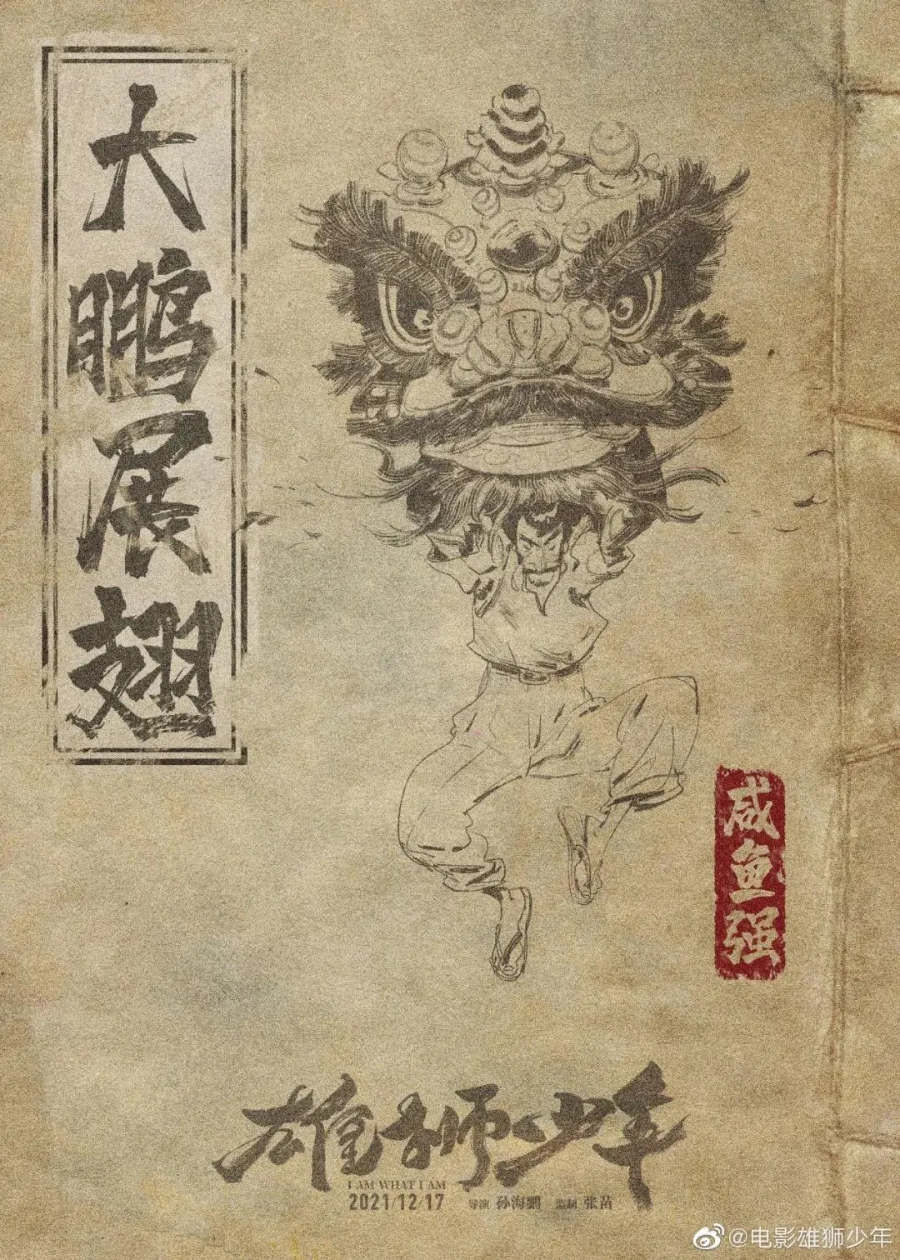 大鹏展翅
咸鱼强
雄狮少年
I AM WHAT I AM
2021/12/17 导演 孙海鹏 监制 张苗
@电影雄狮少年